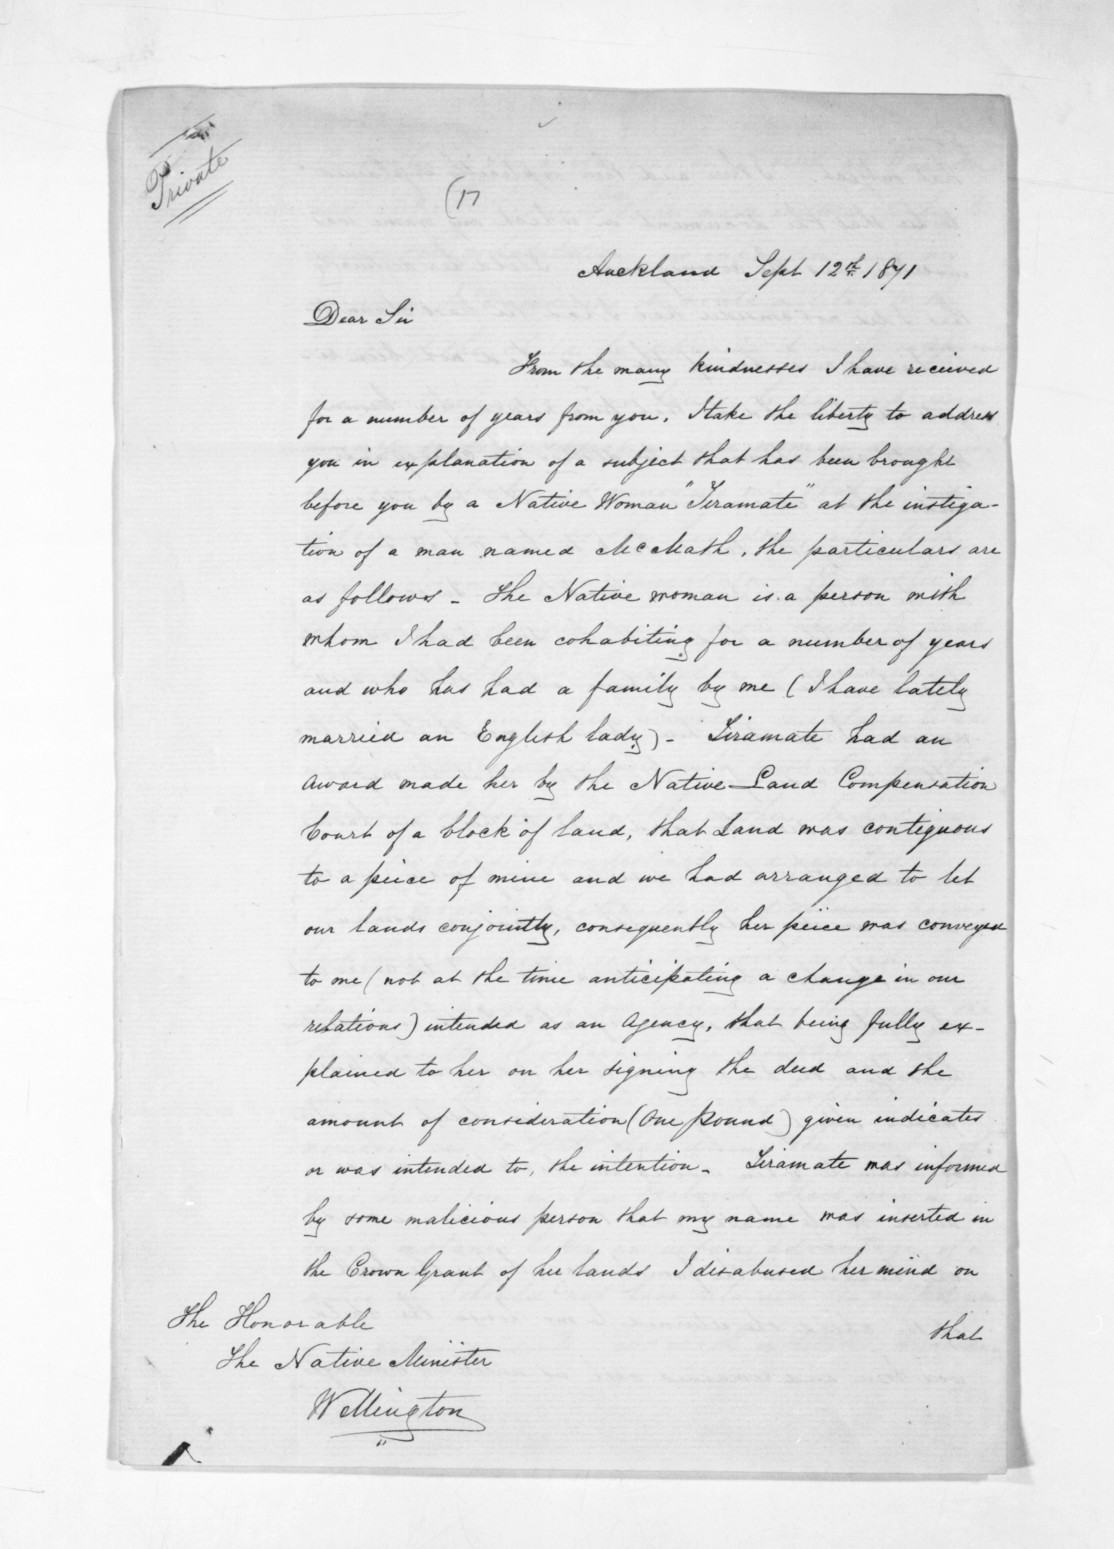 Private
(17
Auckland Sept 12th 1871
Dear Sir
From the many kindnesses I have received
for a number of years from you, I take the liberty to address
you in explanation of a subject that has been brought
before you by a Native Woman "Tiramate" at the instiga-
tion of a man named McMath, the particulars are
as follows - The Native woman is a person with
whom I had been cohabiting for a number of years
and who has had a family by me (I have lately
married an English lady) - Tiramate had an
Award made her by the Native Land Compensation
Court of a block of land, that Land was contiguous
to a peice of mine and we had arranged to let
our lands conjointly, consequently her peice was conveyed
to me (not at the time anticipating a change in our
relations) intended as an Agency, that being fully ex-
plained to her on her signing the deed and the
amount of consideration (One Pound) given indicates
or was intended to, the intention - Tiramate was informed
by some malicious person that my name was inserted in
the Crown Grant of her lands I disabused her mind on
that
The Honorable
The Native Minister
Wellington